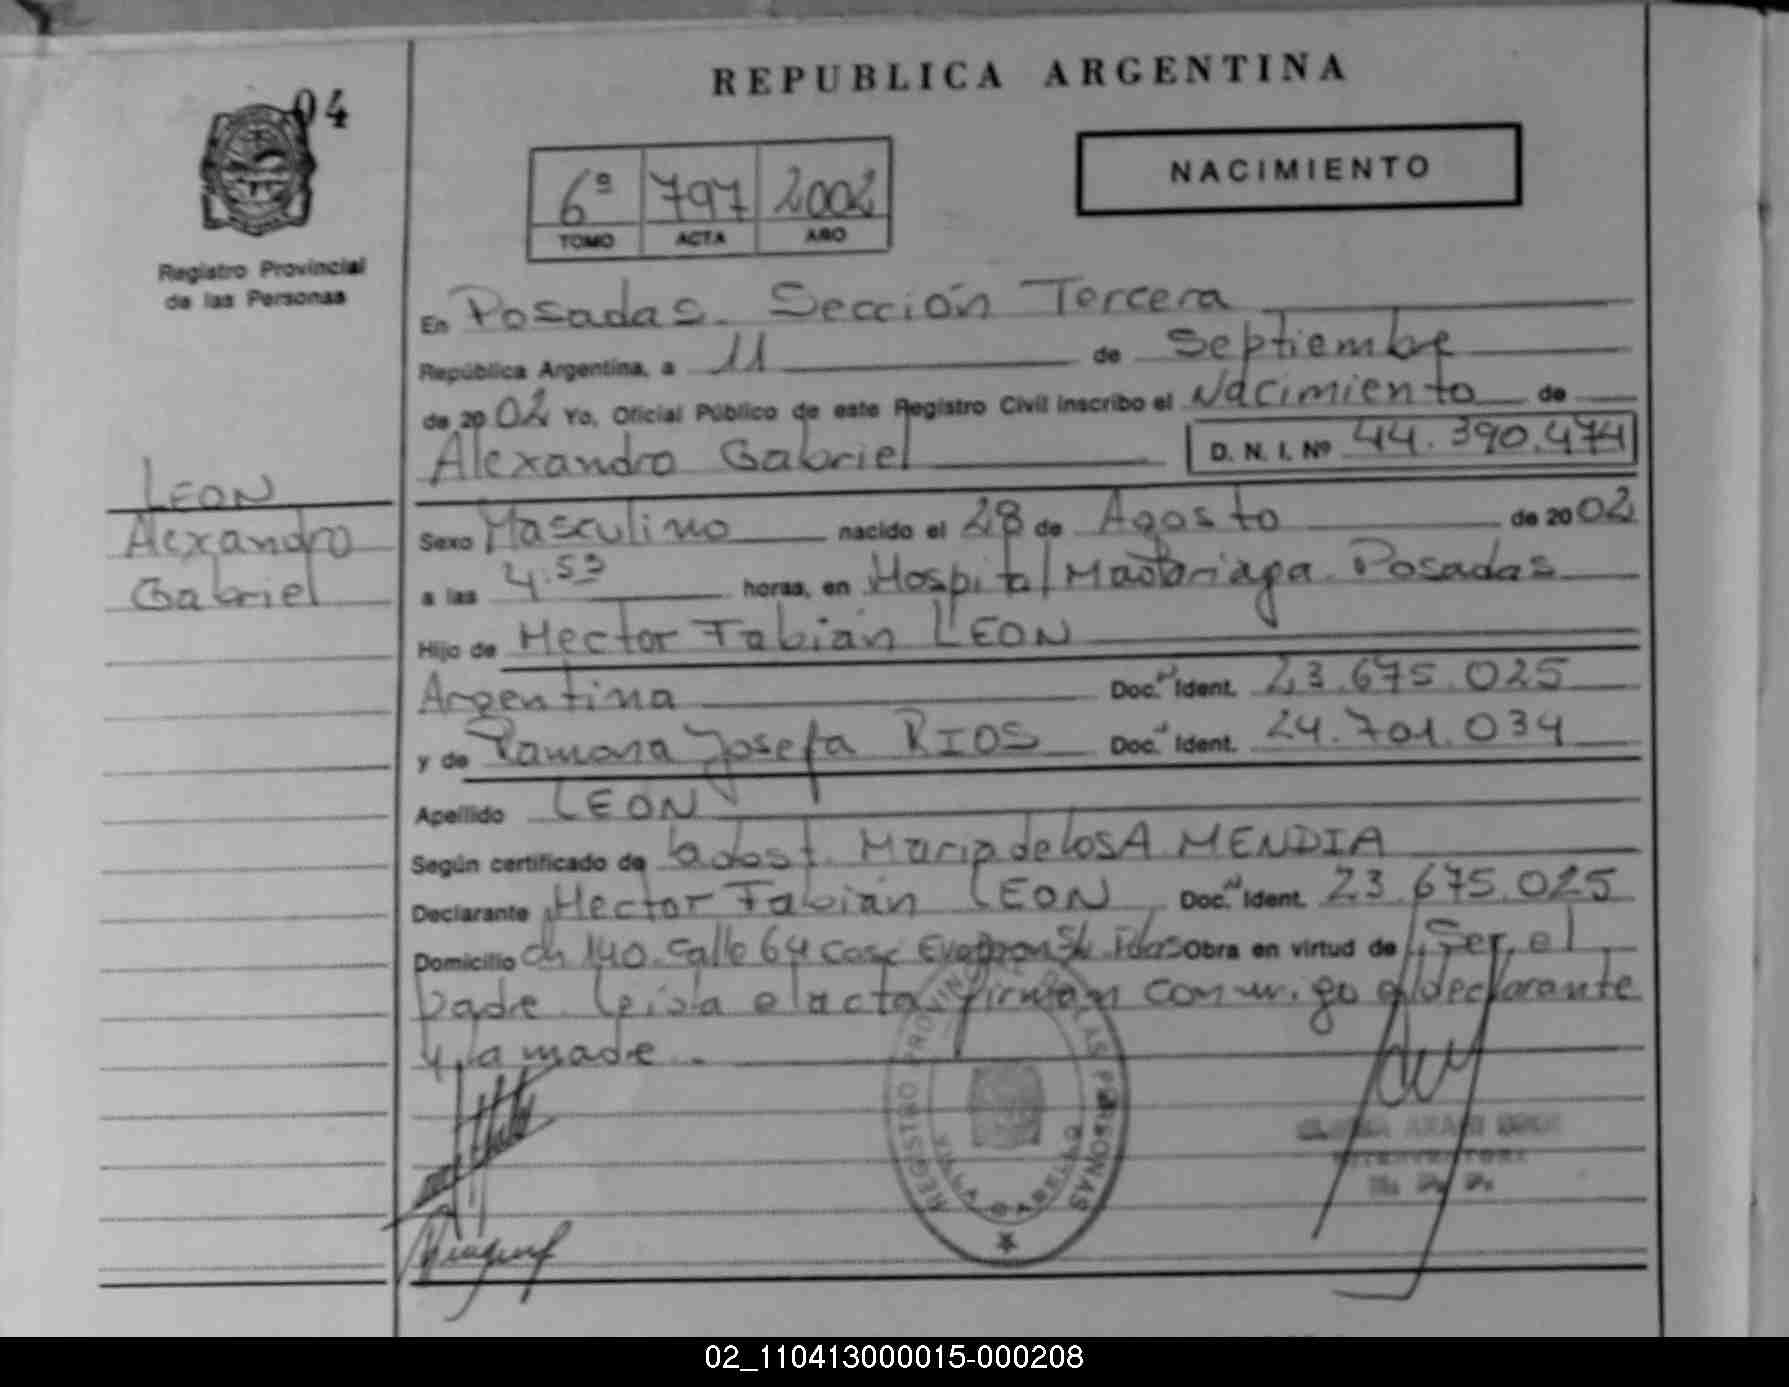 REPUBLICA ARGENTINA
04
NACIMIENTO
6º 797 2002
TOMO ACTA AÑO
Registro Provincial
de las Personas
En Posadas. Sección Tercera
República Argentina, a 11 de Septiembre
de 2002 Yo, Oficial Público de este Registro Civil inscribo el Nacimiento de
Alexandro Gabriel D. N. I. Nº 44.390.474
LEON
Alexandro
Gabriel
Sexo Masculino nacido el 28 de Agosto de 2002
a las 4.53 horas, en Hospital Madariaga. Posadas
Hijo de Hector Fabián LEON
Argentina Doc. Ident. 23.675.025
y de Ramona Josefa RIOS Doc. Ident. 24.701.034
Apellido LEON
Según certificado de obst. Maria de los A MENDIA
Declarante Hector Fabián LEON Doc. Ident. 23.675.025
Domicilio Ch 140. Calle 64 Casa Obra en virtud de Ser el
padre. Leida el acta firman conmigo el declarante
y la madre.
REGISTRO PROVINCIAL DE LAS PERSONAS
VILLA CABELLO
02_110413000015-000208